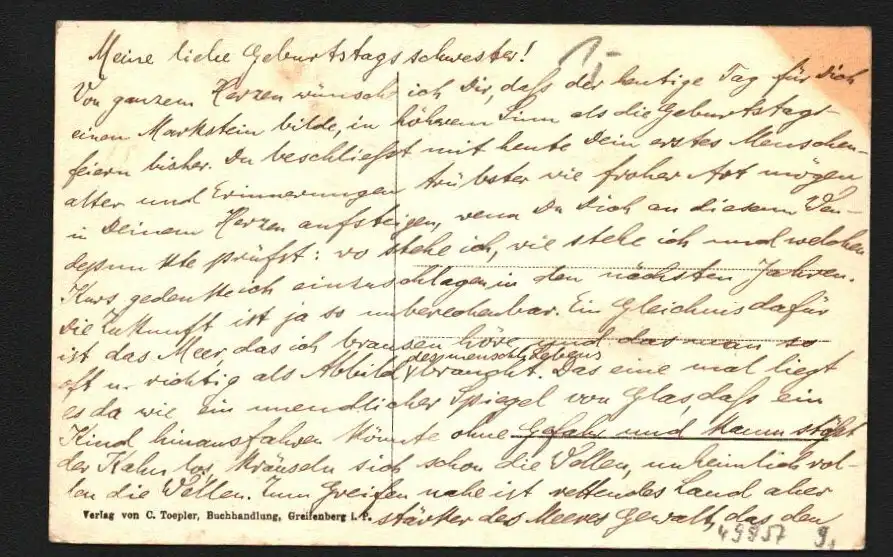 Meine liebe Geburtstagsschwester!
Von ganzem Herzen wünscht ich Dir, daß der heutige Tag für Dich
einen Markstein bilde, in höherem Sinn als die Geburtstags-
feiern bisher. Du beschließt mit heute Dein erstes Menschen-
alter und Erinnerungen trübster wie froher Art mögen
in Deinem Herzen aufsteigen, wenn Du Dich an diesem Wen-
depunkte prüfst: wo stehe ich, wie stehe ich und welchen
Kurs gedenke ich einzuschlagen in den nächsten Jahren.
Die Zukunft ist ja so unberechenbar. Ein Gleichnis dafür
ist das Meer, das ich brausen höre und das man so
oft u. richtig als Abbild des menschl. Lebens braucht. Das eine mal liegt
es da wie ein unendlicher Spiegel von Glas, daß ein
Kind hinausfahren könnte ohne Gefahr und kaum stößt
der Kahn los, kräuseln sich schon die Wellen, unheimlich rol-
len die Wellen. Zum Greifen nahe ist rettendes Land aber
stärker des Meeres Gewalt, das den
Verlag von C. Toepler, Buchhandlung, Greifenberg i. P.
49957 9,